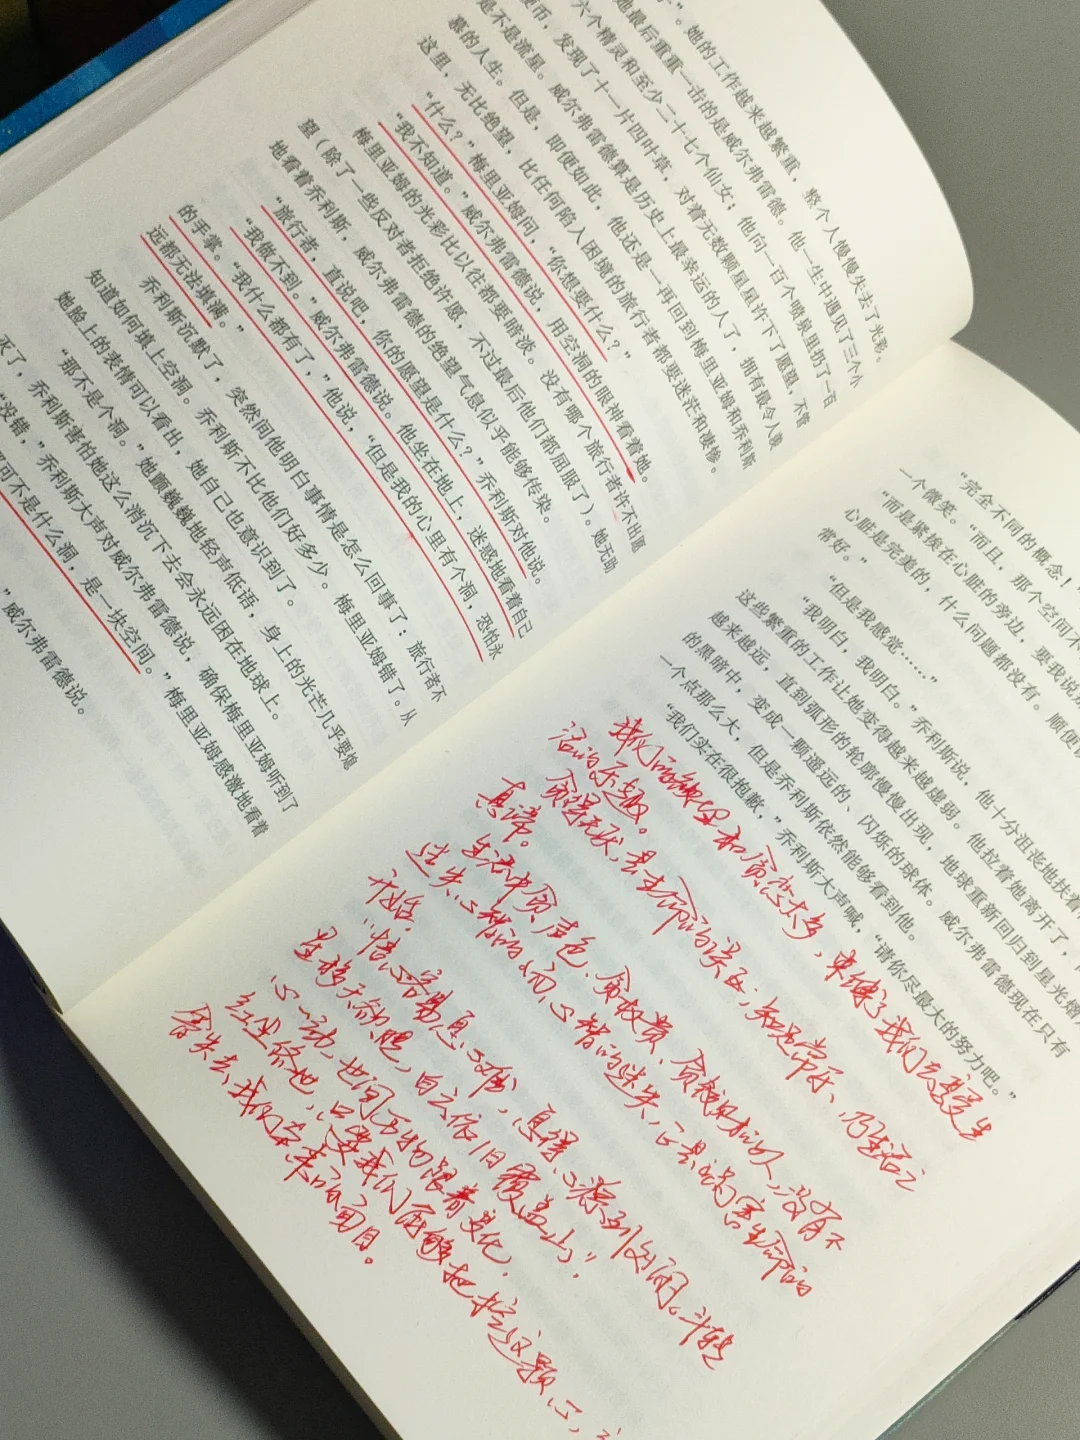 子”。她的工作越来越繁重，整个人慢慢失去了光彩，
她最后重重一击的是威尔弗雷德。他一生中遇见了三个小
六个精灵和至少二十七个仙女；他向一百个喷泉里扔了一百
硬币，发现了十一片四叶草，对着无数颗星星许下了愿望，不管
是不是流星。威尔弗雷德算是历史上最幸运的人了，拥有最令人羡
慕的人生。但是，即便如此，他还是一再回到梅里亚姆和乔利斯
这里，无比绝望，比任何陷入困境的旅行者都要迷茫和凄惨。
“什么？”梅里亚姆问，“你想要什么？”
“我不知道。”威尔弗雷德说，用空洞的眼神看着她。
梅里亚姆的光彩比以往都要暗淡。没有哪个旅行者许不出愿
望（除了一些反对者拒绝许愿，不过最后他们都屈服了）。她无助
地看着乔利斯，威尔弗雷德的绝望气息似乎能够传染。
“旅行者，直说吧，你的愿望是什么？”乔利斯对他说。
“我做不到。”威尔弗雷德说。他坐在地上，迷惑地看着自己
的手掌。“我什么都有了，”他说，“但是我的心里有个洞，恐怕永
远都无法填满。”
乔利斯沉默了，突然间他明白事情是怎么回事了：旅行者不
知道如何填上空洞。乔利斯不比他们好多少。梅里亚姆错了。从
她脸上的表情可以看出，她自己也意识到了。
“那不是个洞。”她颤巍巍地轻声低语，身上的光芒几乎要熄
灭了，乔利斯害怕她这么消沉下去会永远困在地球上。
“没错，”乔利斯大声对威尔弗雷德说，确保梅里亚姆听到了
可不是什么洞，是一块空间。”梅里亚姆感激地看着
”威尔弗雷德说。
“完全不同的概念！
一个微笑。“而且，那个空间不
“而是紧挨在心脏的旁边，要我说
心脏是完美的，什么问题都没有。顺便
常好。”
“但是我感觉……”
“我明白，我明白。”乔利斯说，他十分沮丧地扶着
这些繁重的工作让她变得越来越虚弱。他拉着她离开了，
越来越远，直到弧形的轮廓慢慢出现，地球重新回归到星光熠
的黑暗中，变成一颗遥远的、闪烁的球体。威尔弗雷德现在只有
一个点那么大，但是乔利斯依然能够看到他。
“我们实在很抱歉，”乔利斯大声喊，“请你尽最大的努力吧。”
我们的欲望和贪恋太多，束缚了我们去享受生
活的乐趣。
贪得无厌，是生命的误区；知足常乐，乃生活之
真谛。
生活中贪声色、贪权贵、贪钱财的人，没有不
迷失心智的，而心智的迷失，正是祸害生命的
开始。
“悟心容易息心难，息得心源到处闲。斗转
星移天欲晓，白云依旧覆盖山”。
心一动，世间万物跟着变化，
红尘俗世，只要我们能够把控这颗心，
会失去我们本来的面目。